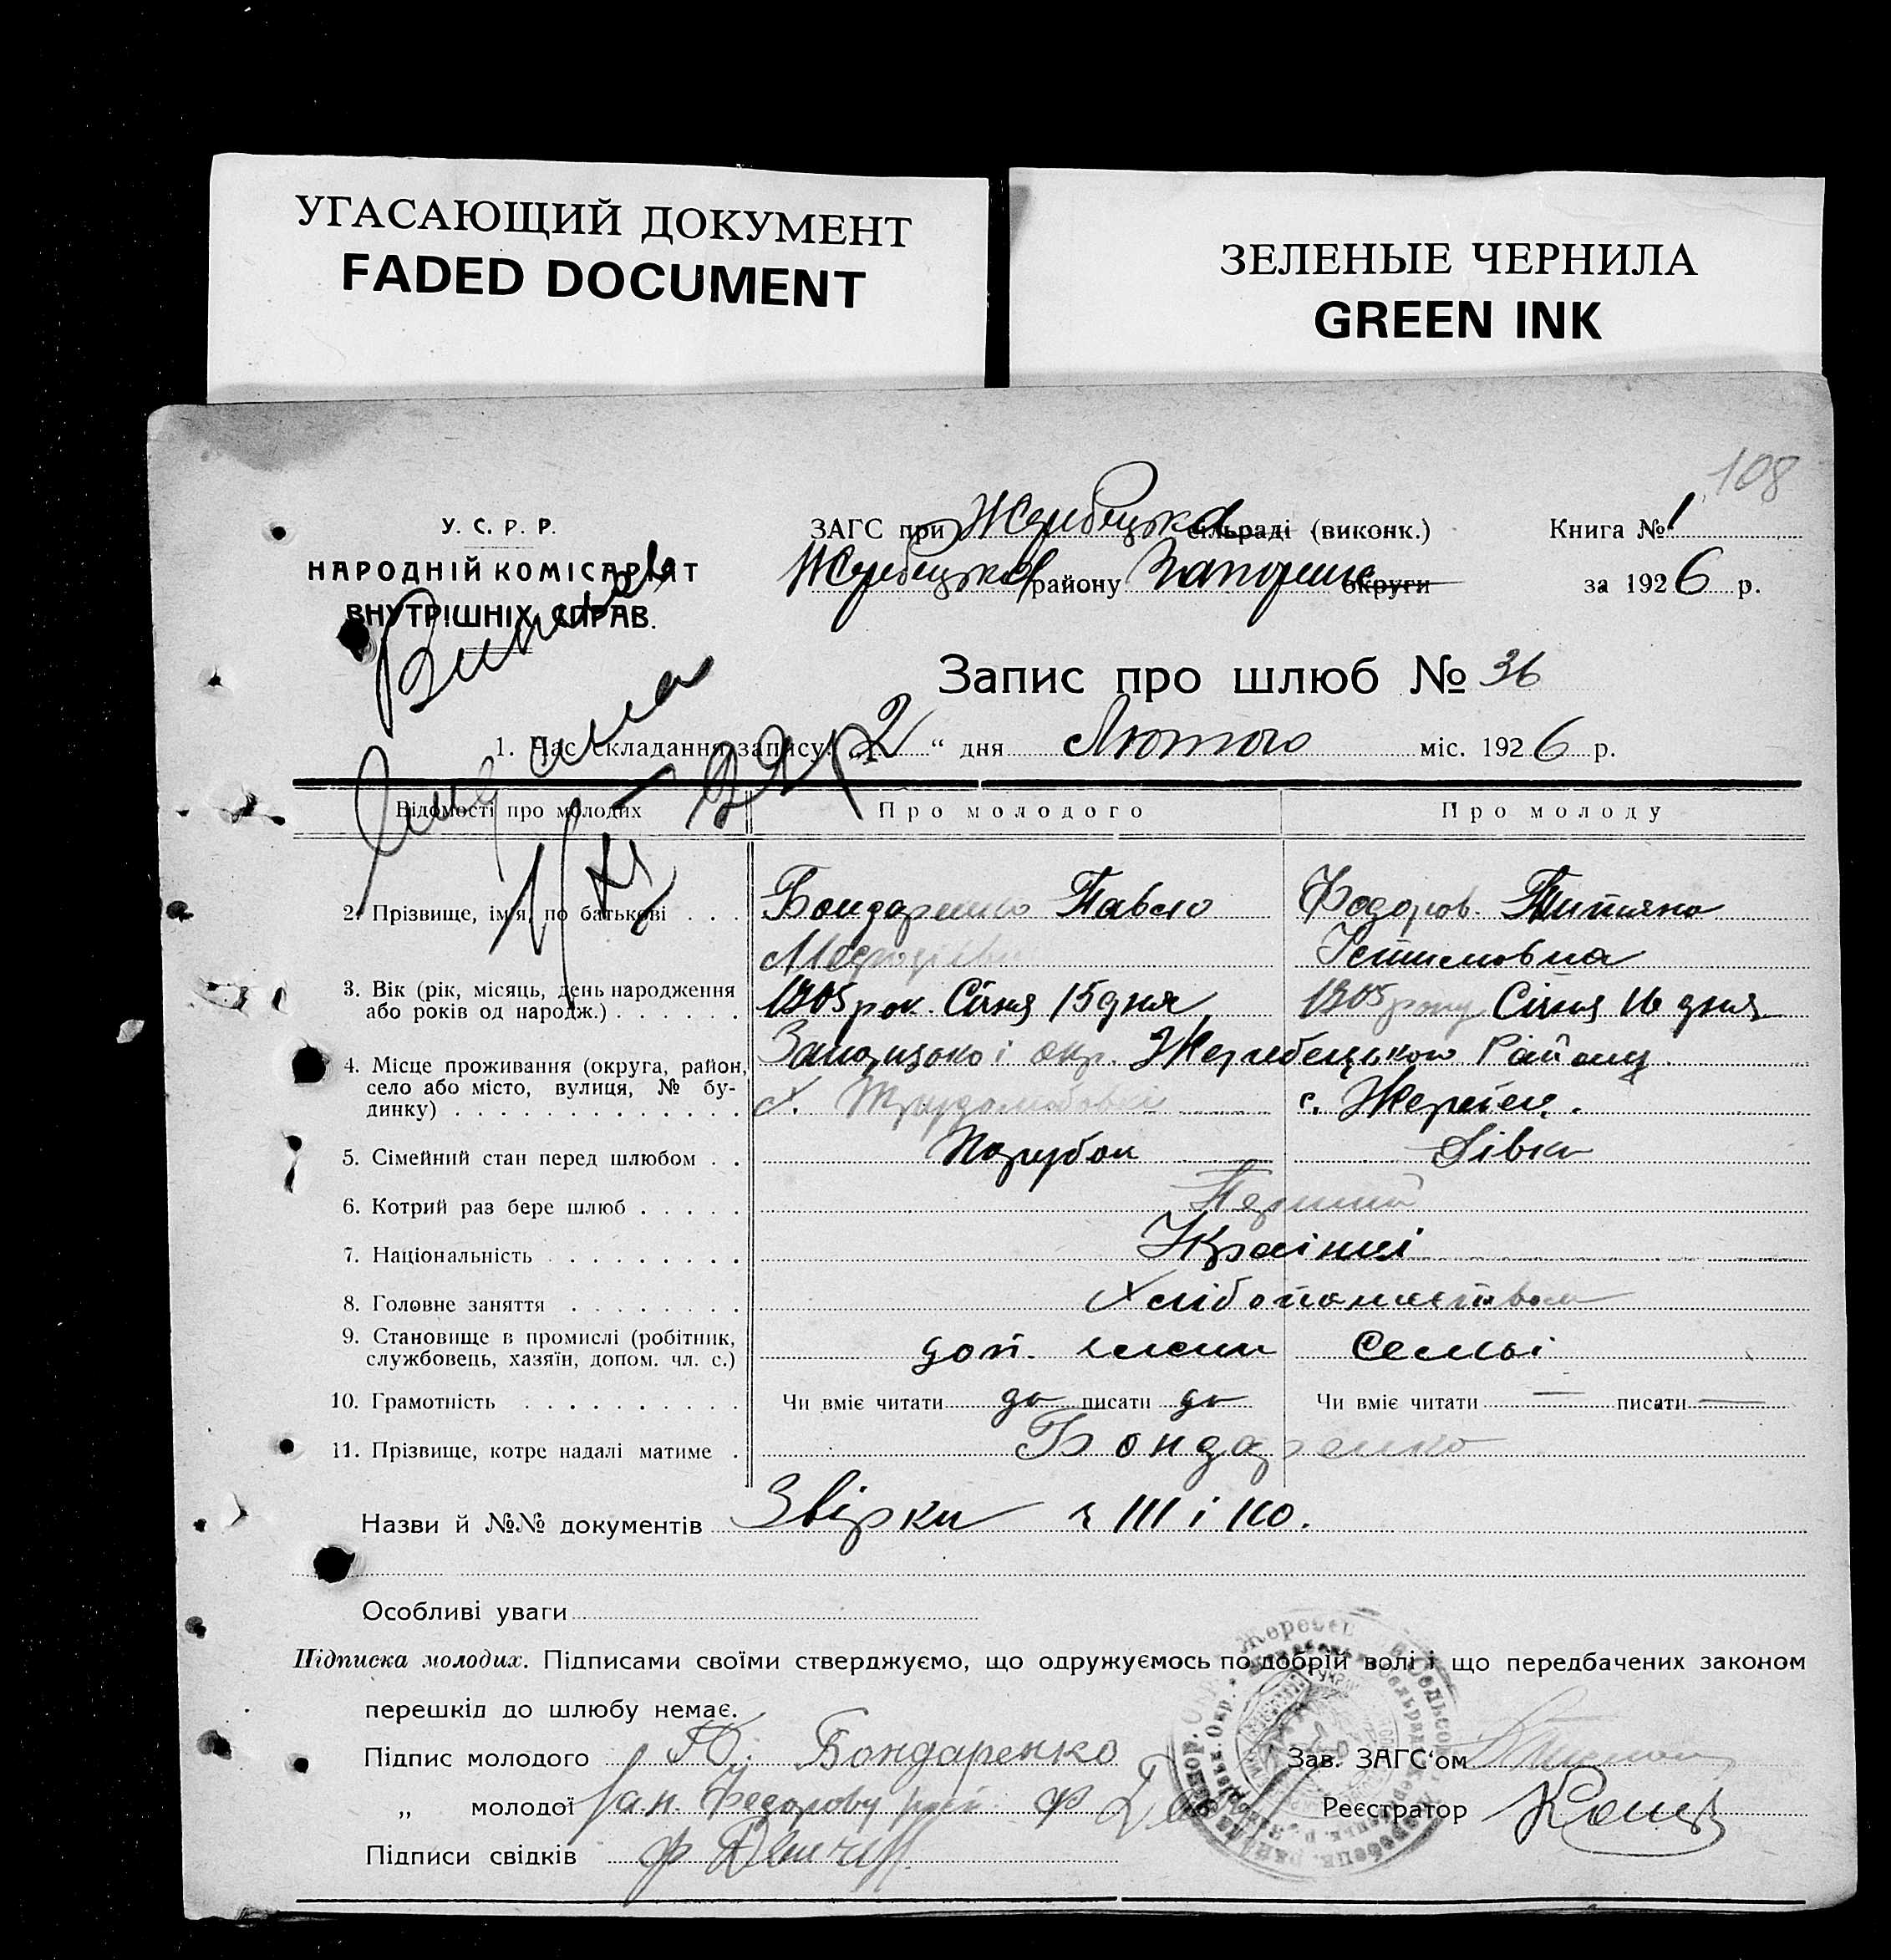 УГАСАЮЩИЙ ДОКУМЕНТ
FADED DOCUMENT
ЗЕЛЕНЫЕ ЧЕРНИЛА
GREEN INK
108
У. С. Р. Р.
НАРОДНІЙ КОМІСАРІЯТ
ВНУТРІШНІХ СПРАВ.
ЗАГС при Жеребецька сільраді (виконк.)
Жеребецькой району Запоріж округи
Книга № 1
за 1926 р.
Запис про шлюб № 36
1. Час складання запису: 2 “ дня Лютого міс. 1926 р.
Відомості про молодих
Про молодого
Про молоду
2. Прізвище, ім'я, по батькові . . .
Бондаренко Павло
Федоров. Титяна
Устимовна
3. Вік (рік, місяць, день народження
або років од народж.) . . . . . .
1905 рок. Січня 15 дня
1905 року Січня 16 дня
4. Місце проживання (округа, район,
село або місто, вулиця, № бу-
динку) . . . . . . . . . . . . .
Запорізької окр. Жеребецького Району
с. Жеребец.
5. Сімейний стан перед шлюбом . .
Парубок
Дівка
6. Котрий раз бере шлюб . . . . .
Перший
7. Національність . . . . . . . .
Українці
8. Головне заняття . . . . . . .
Хлібопашеством
9. Становище в промислі (робітник,
службовець, хазяїн, допом. чл. с.)
доп. члени семьі
10. Грамотність . . . . . . . . . .
Чи вміє читати да писати да
Чи вміє читати — писати —
11. Прізвище, котре надалі матиме .
Бондаренко
Назви й №№ документів Звірки ч 111 і 110.
Особливі уваги
Підписка молодих. Підписами своїми стверджуємо, що одружуємось по добрій волі і що передбачених законом
перешкід до шлюбу немає.
Підпис молодого Бондаренко
„ молодої за н. Федорову
Підписи свідків
Зав. ЗАГС'ом
Реєстратор